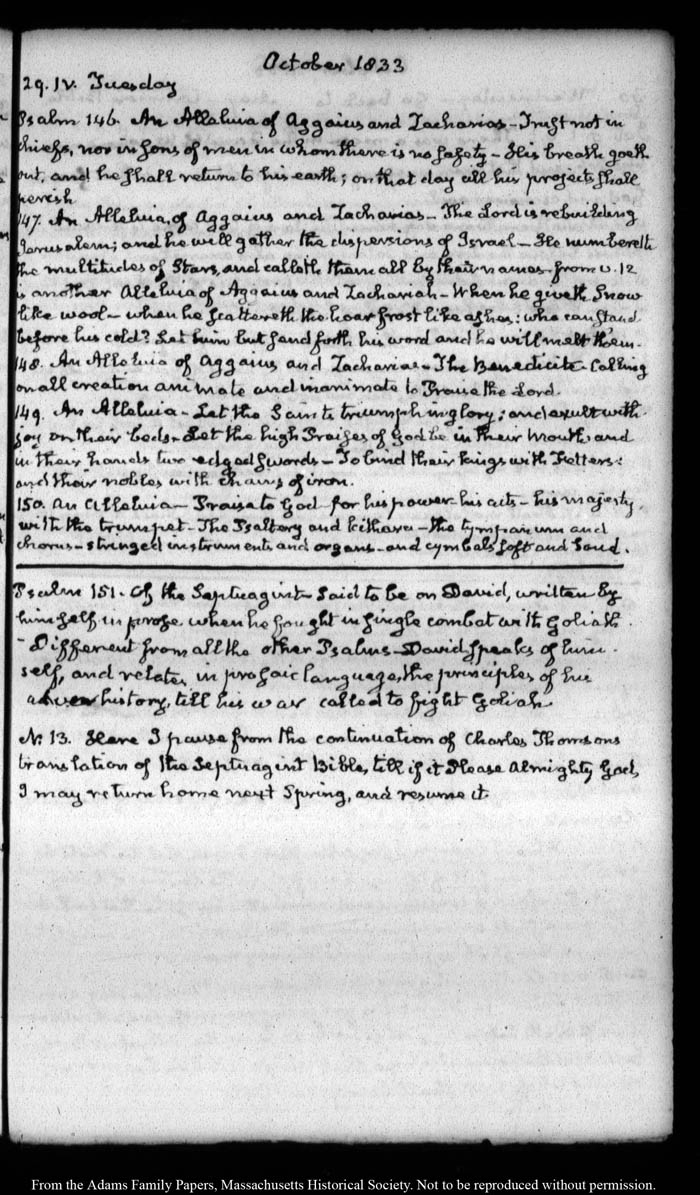 October 1833
29. IV. Tuesday
Psalm 146. An Alleluia of Aggaius and Zacharias - Trust not in
chiefs, nor in Sons of men in whom there is no safety - His breath goeth
out, and he shall return to his earth; on that day all his projects shall
perish
147. An Alleluia, of Aggaius and Zacharias - The Lord is rebuilding
Jerusalem; and he will gather the dispersions of Israel - He numbereth
the multitudes of Stars, and calleth them all by their names - from v. 12
is another Alleluia of Aggaius and Zachariah - When he giveth Snow
like wool - when he scattereth the hoar frost like ashes: who can stand
before his cold? Let him but send forth his word and he will melt them.
148. An Alleluia of Aggaius and Zacharias - The Benedicite - Calling
on all creation animate and inanimate to Praise the Lord.
149. An Alleluia - Let the Saints triumph in glory; and exult with
joy on their beds - Let the high Praises of God be in their mouth, and
in their hands two edged swords - To bind their kings with Fetters:
and their nobles with chains of iron.
150. An Alleluia - Praise to God - for his power - his acts - his majesty,
with the trumpet - The Psaltery and kithara - the tympanum and
chorus - stringed instruments and organs - and cymbals soft and loud.
Psalm 151. Of the Septuagint - Said to be on David, written by
himself in prose when he fought in single combat with Goliath.
- Different from all the other Psalms - David speaks of him-
self, and relates in prosaic language, the principles of his
history, till his war called to fight Goliah.
N. 13. Here I pause from the continuation of Charles Thomsons
translation of the Septuagint Bible, till if it Please Almighty God,
I may return home next Spring, and resume it.
From the Adams Family Papers, Massachusetts Historical Society. Not to be reproduced without permission.